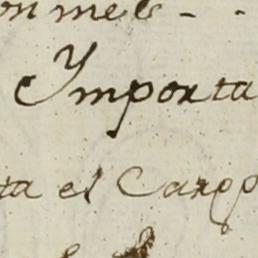 on mels - -
Ymporta
ta el Cargo